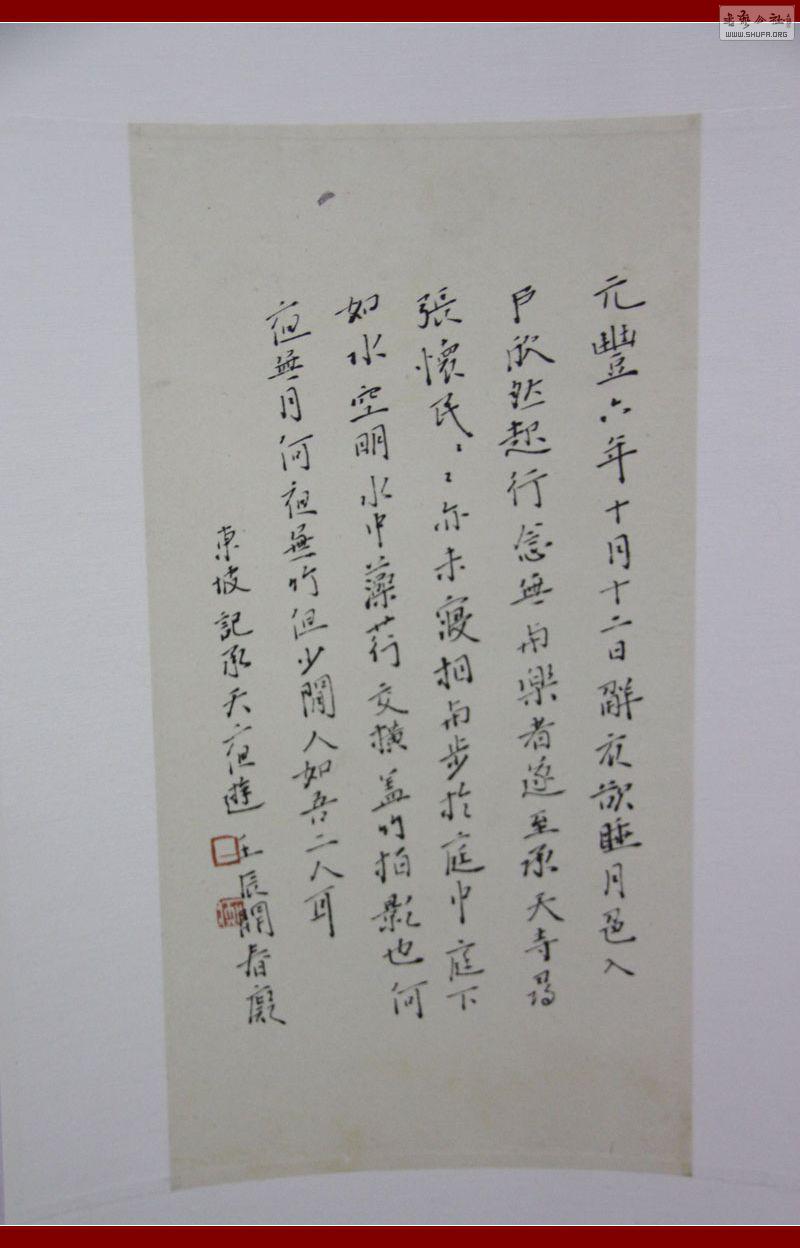 元豐六年十月十二日解衣欲睡月色入
戶欣然起行念無與樂者遂至承天寺尋
張懷民〻〻亦未寢相與步於庭中庭下
如水空明水中藻荇交橫蓋竹柏影也何
夜無月何夜無竹但少閒人如吾二人耳
東坡記承天夜遊 壬辰閏春
WWW.SHUFA.ORG